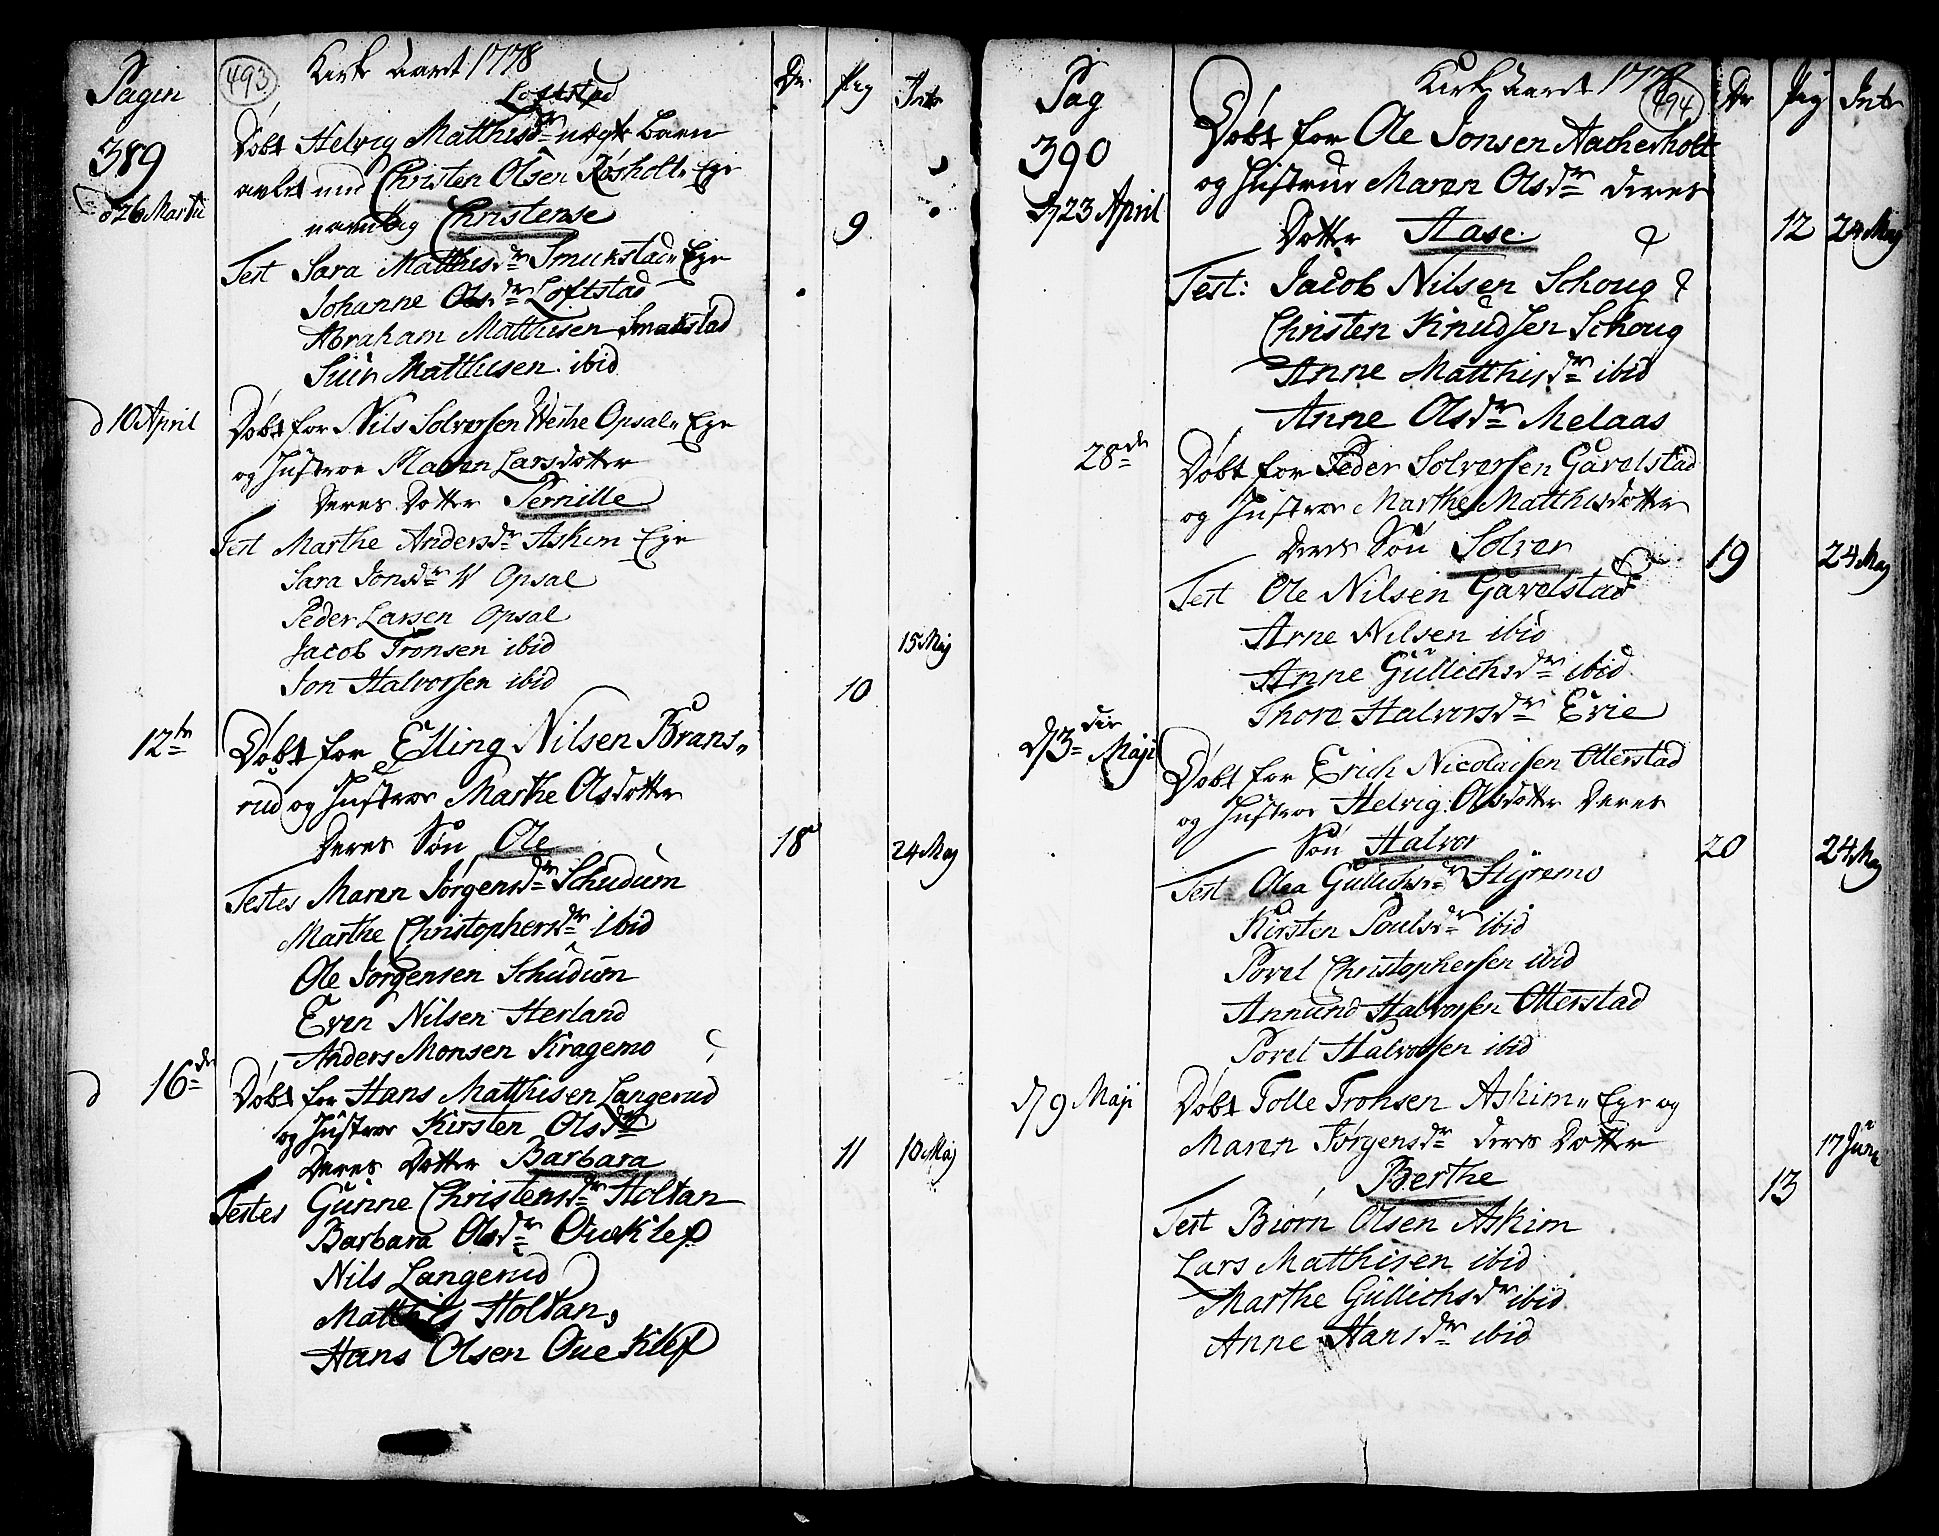 Pagin
493
Kirke Aaret 1778
Dr.
Pig
Intr
389
Loftstad
Døbt Helvig Matthisdr uægte Barn
avlet med Christen Olsen Røsholt, Ege
d 26 Martii
navnlig Christense
9
Test Sara Matthisdr Smukstad, Ege
Johanne Olsdr Loftstad
Abraham Matthisen Smukstad
Siur Matthisen ibid
d 10 April
Døbt for Nils Solversen Westre Opsal, Ege
og Hustroe Maren Larsdotter
Deres Dotter Pernille
Test Marthe Andersdr Askim Ege
Sara Jonsdr W Opsal
Peder Larsen Opsal
Jacob Tronsen ibid
15 Maj
Jon Halvorsen ibid
10
12te
Døbt for Elling Nilsen Brans,,
rud og Hustroe Marthe Olsdotter
Deres Søn Ole
18
24 Maj
Testes Maren Jørgensdr Schudum
Marthe Christophersdr ibid
Ole Jørgensen Schudum
Even Nilsen Herland
Anders Monsen Kragemo
d 16de
Døbt for Hans Matthisen Langerud
og Hustroe Kirsten Olsdr
Deres Dotter Barbara
11
10 Maj
Testes Gunne Christensdr Holtan
Barbara Olsdr Oueklef
Nils Langerud
Matthis Holtan,
Hans Olsen Oueklef
Pag
Kirke Aaret 1778
494
Dr
Pig
Intr
390
Døbt for Ole Jonsen Aacherholt
og Hustrue Maren Olsdr deres
d 23 April
Dotter Aase
12
24 Maj
Test: Jacob Nilsen Schoug
Christen Knudsen Schoug
Anne Matthisdr ibid
Anne Olsdr Melaas
28de
Døbt for Peder Solversen Gavelstad
og Hustroe Marthe Matthisdotter
Deres Søn Solver
19
24 Maj
Test Ole Nilsen Gavelstad
Arne Nilsen ibid
Anne Gullichsdr ibid
Thore Halvorsdr Evie
d 3die Maji
Døbt for Erich Nicolaisen Otterstad
og Hustroe Helvig Olsdotter Deres
Søn Halvor
20
24 Maj
Test Olea Gullichsdr Styremo
Kirsten Poulsdr ibid
Povel Christophersen ibid
Annund Halvorsen Otterstad
Povel Halvorsen ibid
d 9 Maji
Døbt Tolle Tronsen Askim, Ege og
Maren Jørgensdr deres Dotter
17 Juni
Berthe
13
Test Biørn Olsen Askim
Lars Matthisen ibid
Marthe Gullichsdr ibid
Anne Hansdr ibid